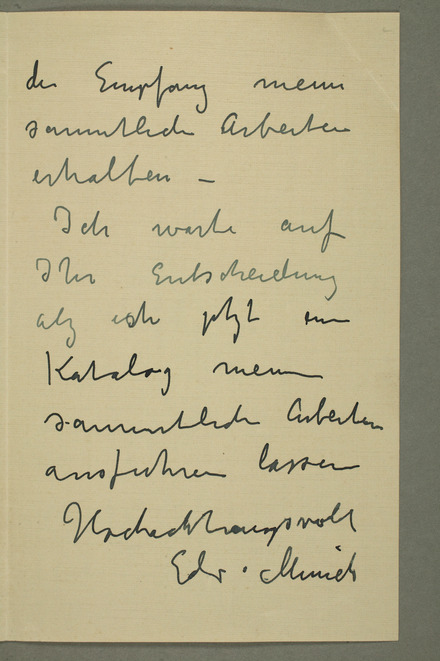 den Empfang meiner
sammtliche Arbeiten
erhalten –
Ich warte auf
Ihre Entscheidung
als ich jetzt ein
Katalog meiner
sammtliche Arbeiten
ausfuhren lassen
Hochachtungsvoll
Edv. Munch